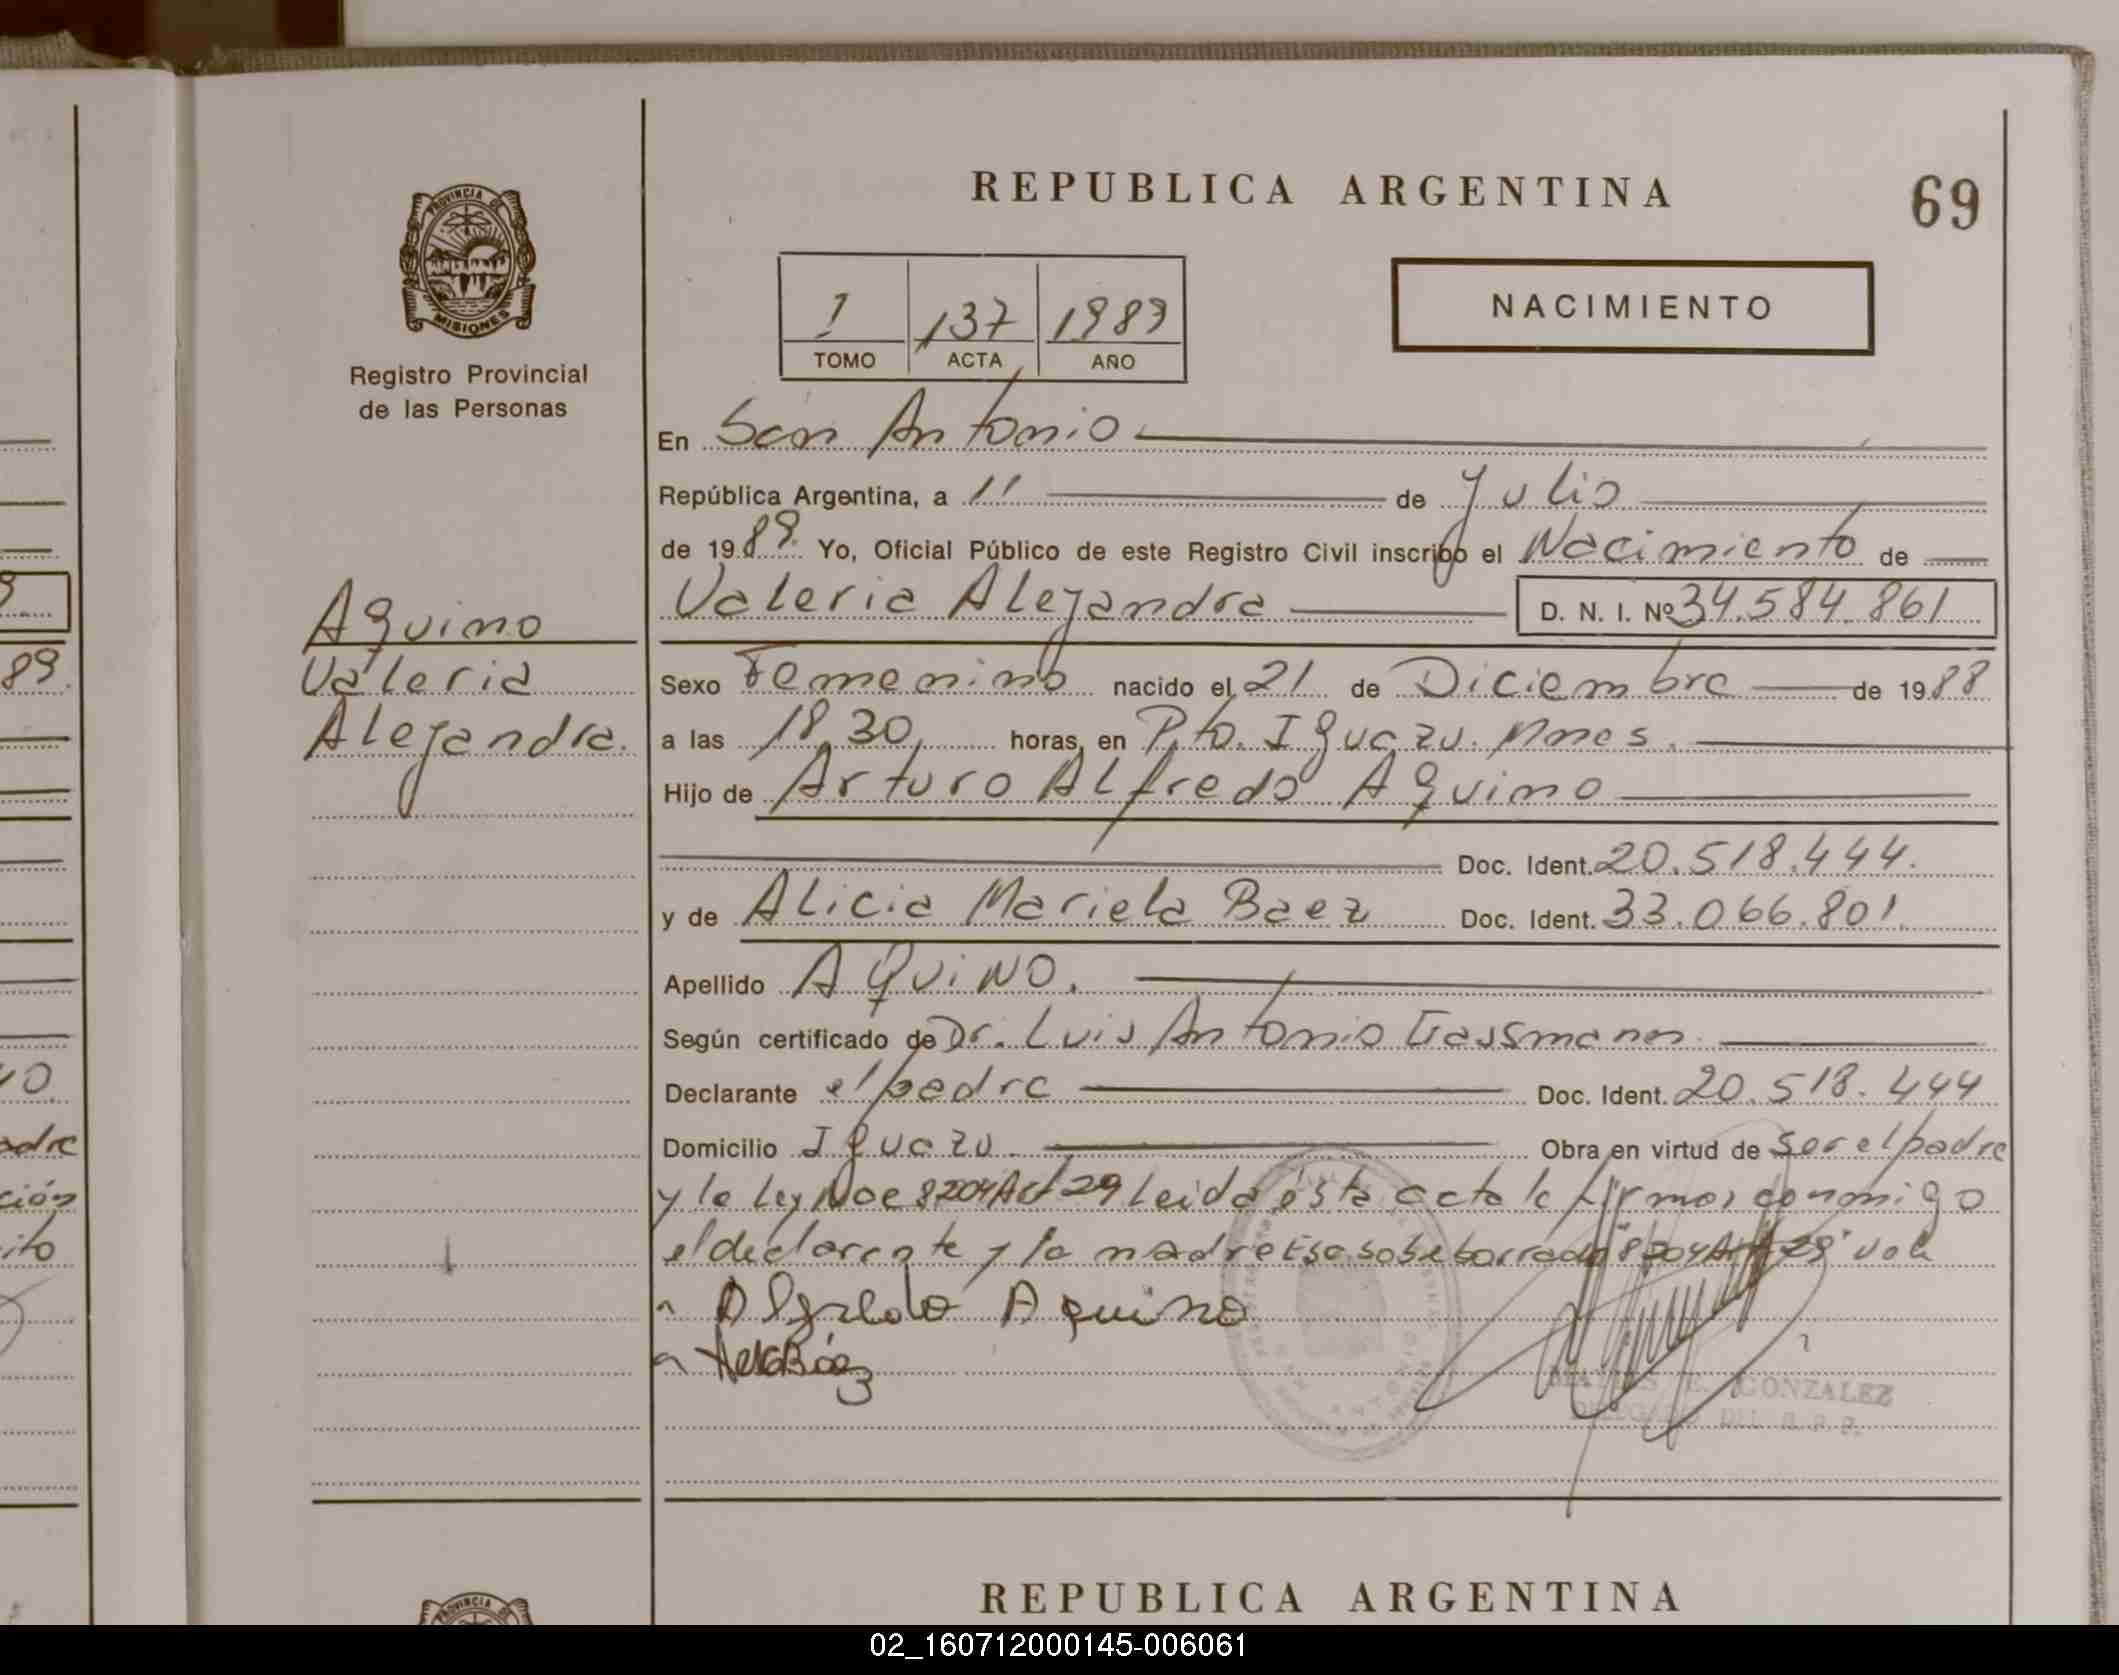 REPUBLICA ARGENTINA
69
PROVINCIA DE
MISIONES
Registro Provincial
de las Personas
1 137 1989
TOMO ACTA AÑO
NACIMIENTO
En San Antonio
República Argentina, a 11 de Julio
de 1989. Yo, Oficial Público de este Registro Civil inscribo el Nacimiento de
Valeria Alejandra D. N. I. Nº 34.584.861
Aquino
Valeria
Alejandra.
Sexo Femenino nacido el 21 de Diciembre de 1988
a las 18,30, horas, en Pto. Iguazu. Mnes.
Hijo de Arturo Alfredo Aquino
Doc. Ident. 20.518.444.
y de Alicia Mariela Baez Doc. Ident. 33.066.801.
Apellido AQuiNO.
Según certificado de Dr. Luis Antonio Gassmann
Declarante el padre Doc. Ident. 20.518.444
Domicilio Iguazu. Obra en virtud de ser el padre
y la Ley Nac 8204 Art 29 Leida esta acta la firman conmigo
el declarante y la madre Eso sobreborrado "8204 Art 29" vale
Alfredo Aquino
Báez
E. GONZALEZ
DELEGADO DEL R.P.P.
89.
REPUBLICA ARGENTINA
PROVINCIA DE
02_160712000145-006061